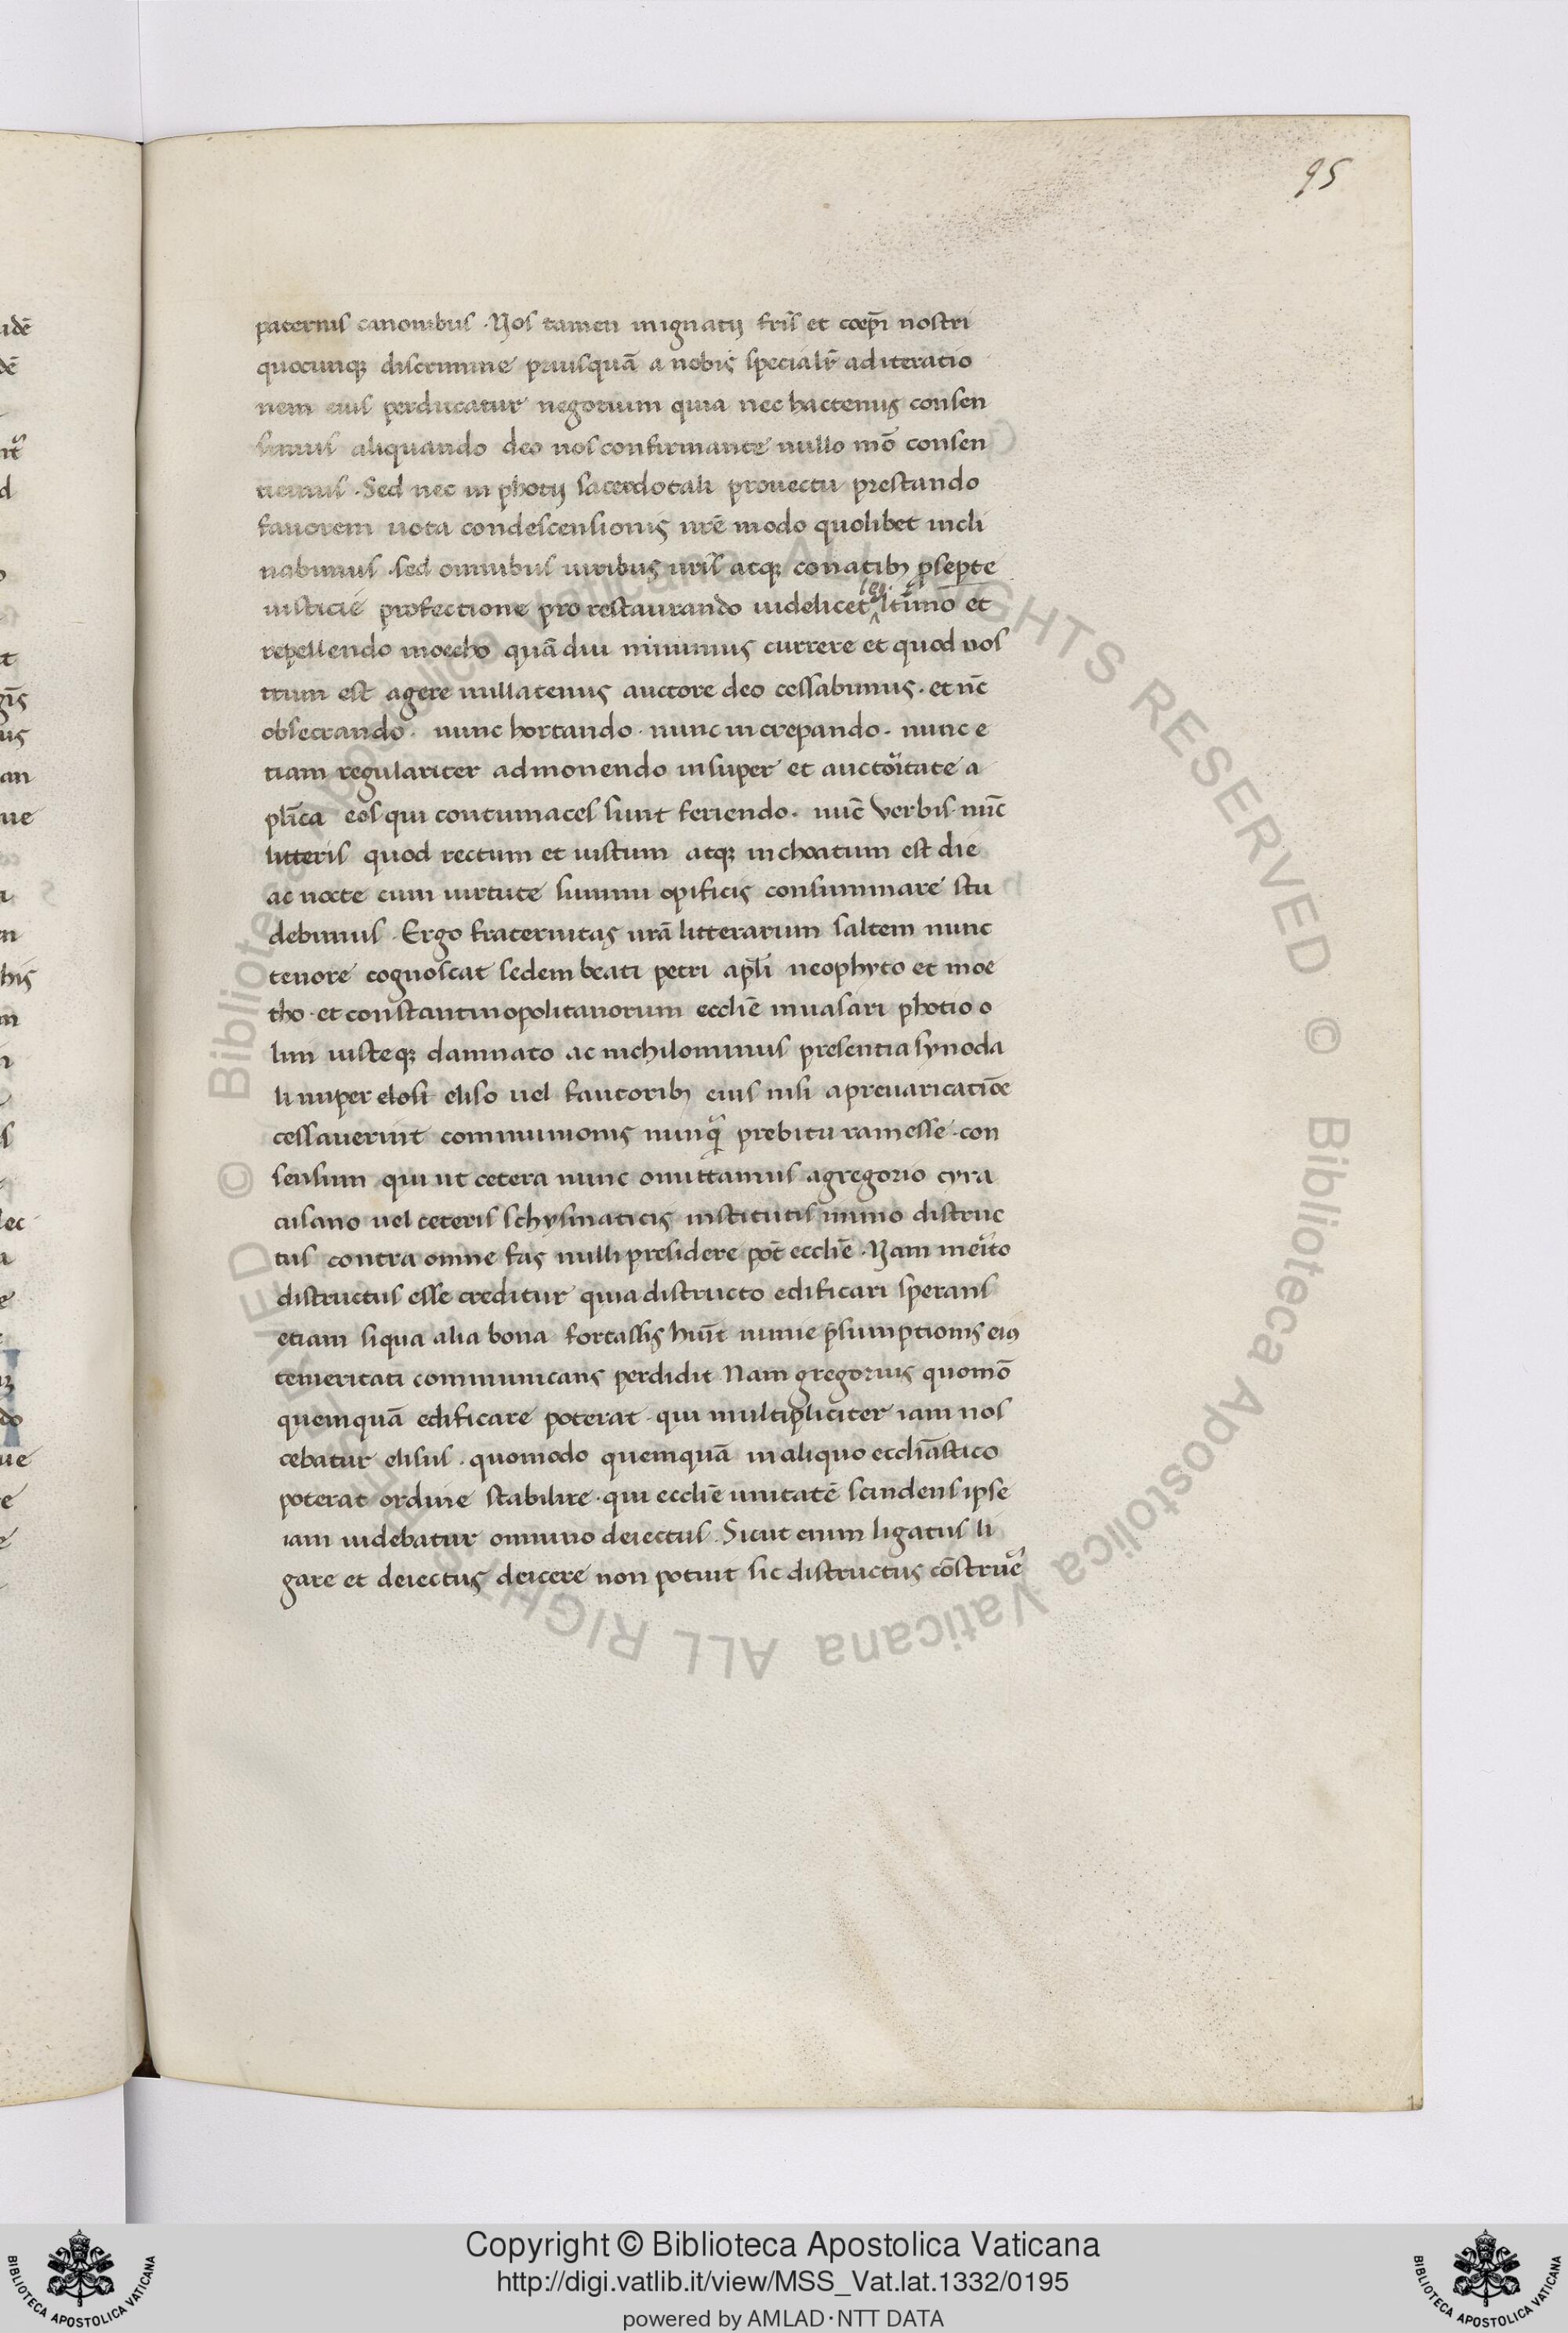 95
paternis canonibus · Nos tamen in ignatij fr̄is et coep̄i nostri
quocunq; discrimine priusquā a nobis specialr̄ ad iteratio
nem eius perducatur negotium quia nec hactenus consen
simus aliquando deo nos confirmante nullo mō consen
tiemus · Sed nec in photij sacerdotali prouectu prestando
fauorem uota condescensionis nr̄e modo quolibet incli
nabimus · sed omnibus uiribus nr̄is atq; conatib;
iusticie profectione pro restaurando uidelicet legitimo et
repellendo moecho quādiu minimus currere et quod nos
trum est agere nullatenus auctore deo cessabimus · et nc̄
obsecrando · nunc hortando · nunc increpando · nunc e
tiam regulariter admonendo insuper et auctoritate a
plīca eos qui contumaces sunt feriendo · nūc verbis nūc
litteris quod rectum et iustum atq; inchoatum est die
ac nocte cum uirtute summi opificis consummare stu
debimus · Ergo fraternitas ur̄a litterarum saltem nunc
tenore cognoscat sedem beati petri apl̄i neophyto et moe
tho · et constantinopolitanorum eccl̄ie inuasari photio o
lim iusteq; damnato ac nichilominus presentia synoda
li nuper elosi eliso uel fautorib; eius nisi a preuaricatiōe
cessauerint communionis nunq̄ prebitu ram esse · con
sensum qui ut cetera nunc omittamus a gregorio cyra
cusano uel ceteris schysmaticis institutis immo distruc
tus contra omne fas nulli presidere pōt eccl̄ie · Nam merito
distructus esse creditur quia distructo edificari sperans
etiam siqua alia bona fortassis huīt nimie p̄sumptionis ei9
temeritati communicans perdidit Nam gregorius quomō
quemquā edificare poterat · qui multipliciter iam nos
cebatur elisus · quomodo quemquā in aliquo eccl̄iastico
poterat ordine stabilire · qui eccl̄ie unitatē scindens ipse
iam uidebatur omnino deiectus · Sicut enim ligatus li
gare et deiectus deicere non potuit sic distructus cōstrue
© Biblioteca Apostolica Vaticana ALL RIGHTS RESERVED © Biblioteca Apostolica Vaticana ALL RIGHTS RESERVED
Copyright © Biblioteca Apostolica Vaticana
http://digi.vatlib.it/view/MSS_Vat.lat.1332/0195
powered by AMLAD·NTT DATA
BIBLIOTECA APOSTOLICA VATICANA
BIBLIOTECA APOSTOLICA VATICANA